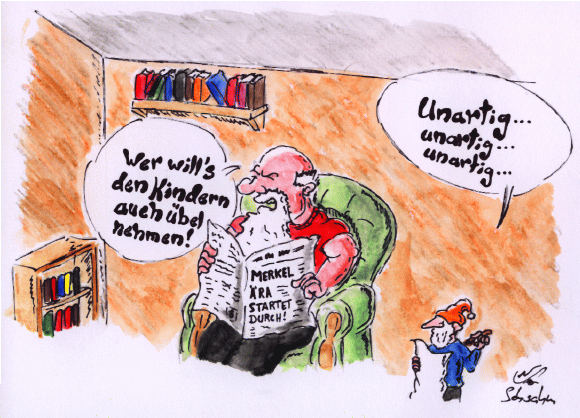 Unartig...
unartig...
unartig...
Wer will's
den Kindern
auch übel
nehmen!
MERKEL
ÄRA
STARTET
DURCH!